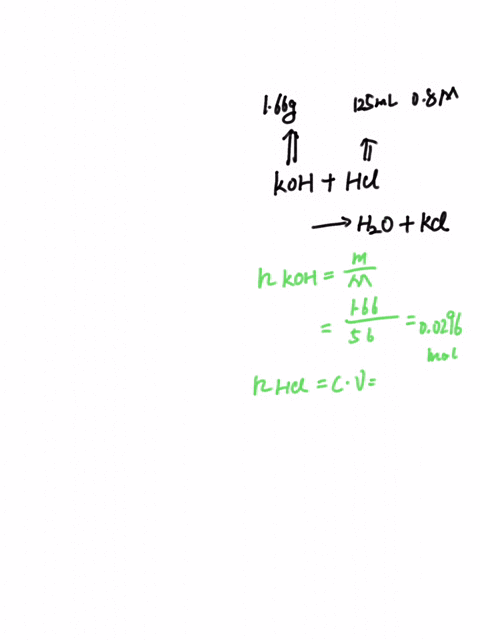 1.66g 125mL 0.8M
⇑ ⇑
KOH + HCl
⟶ H₂O + KCl
n KOH = m/M
= 1.66/56 = 0.0296 mol
n HCl = C·V =